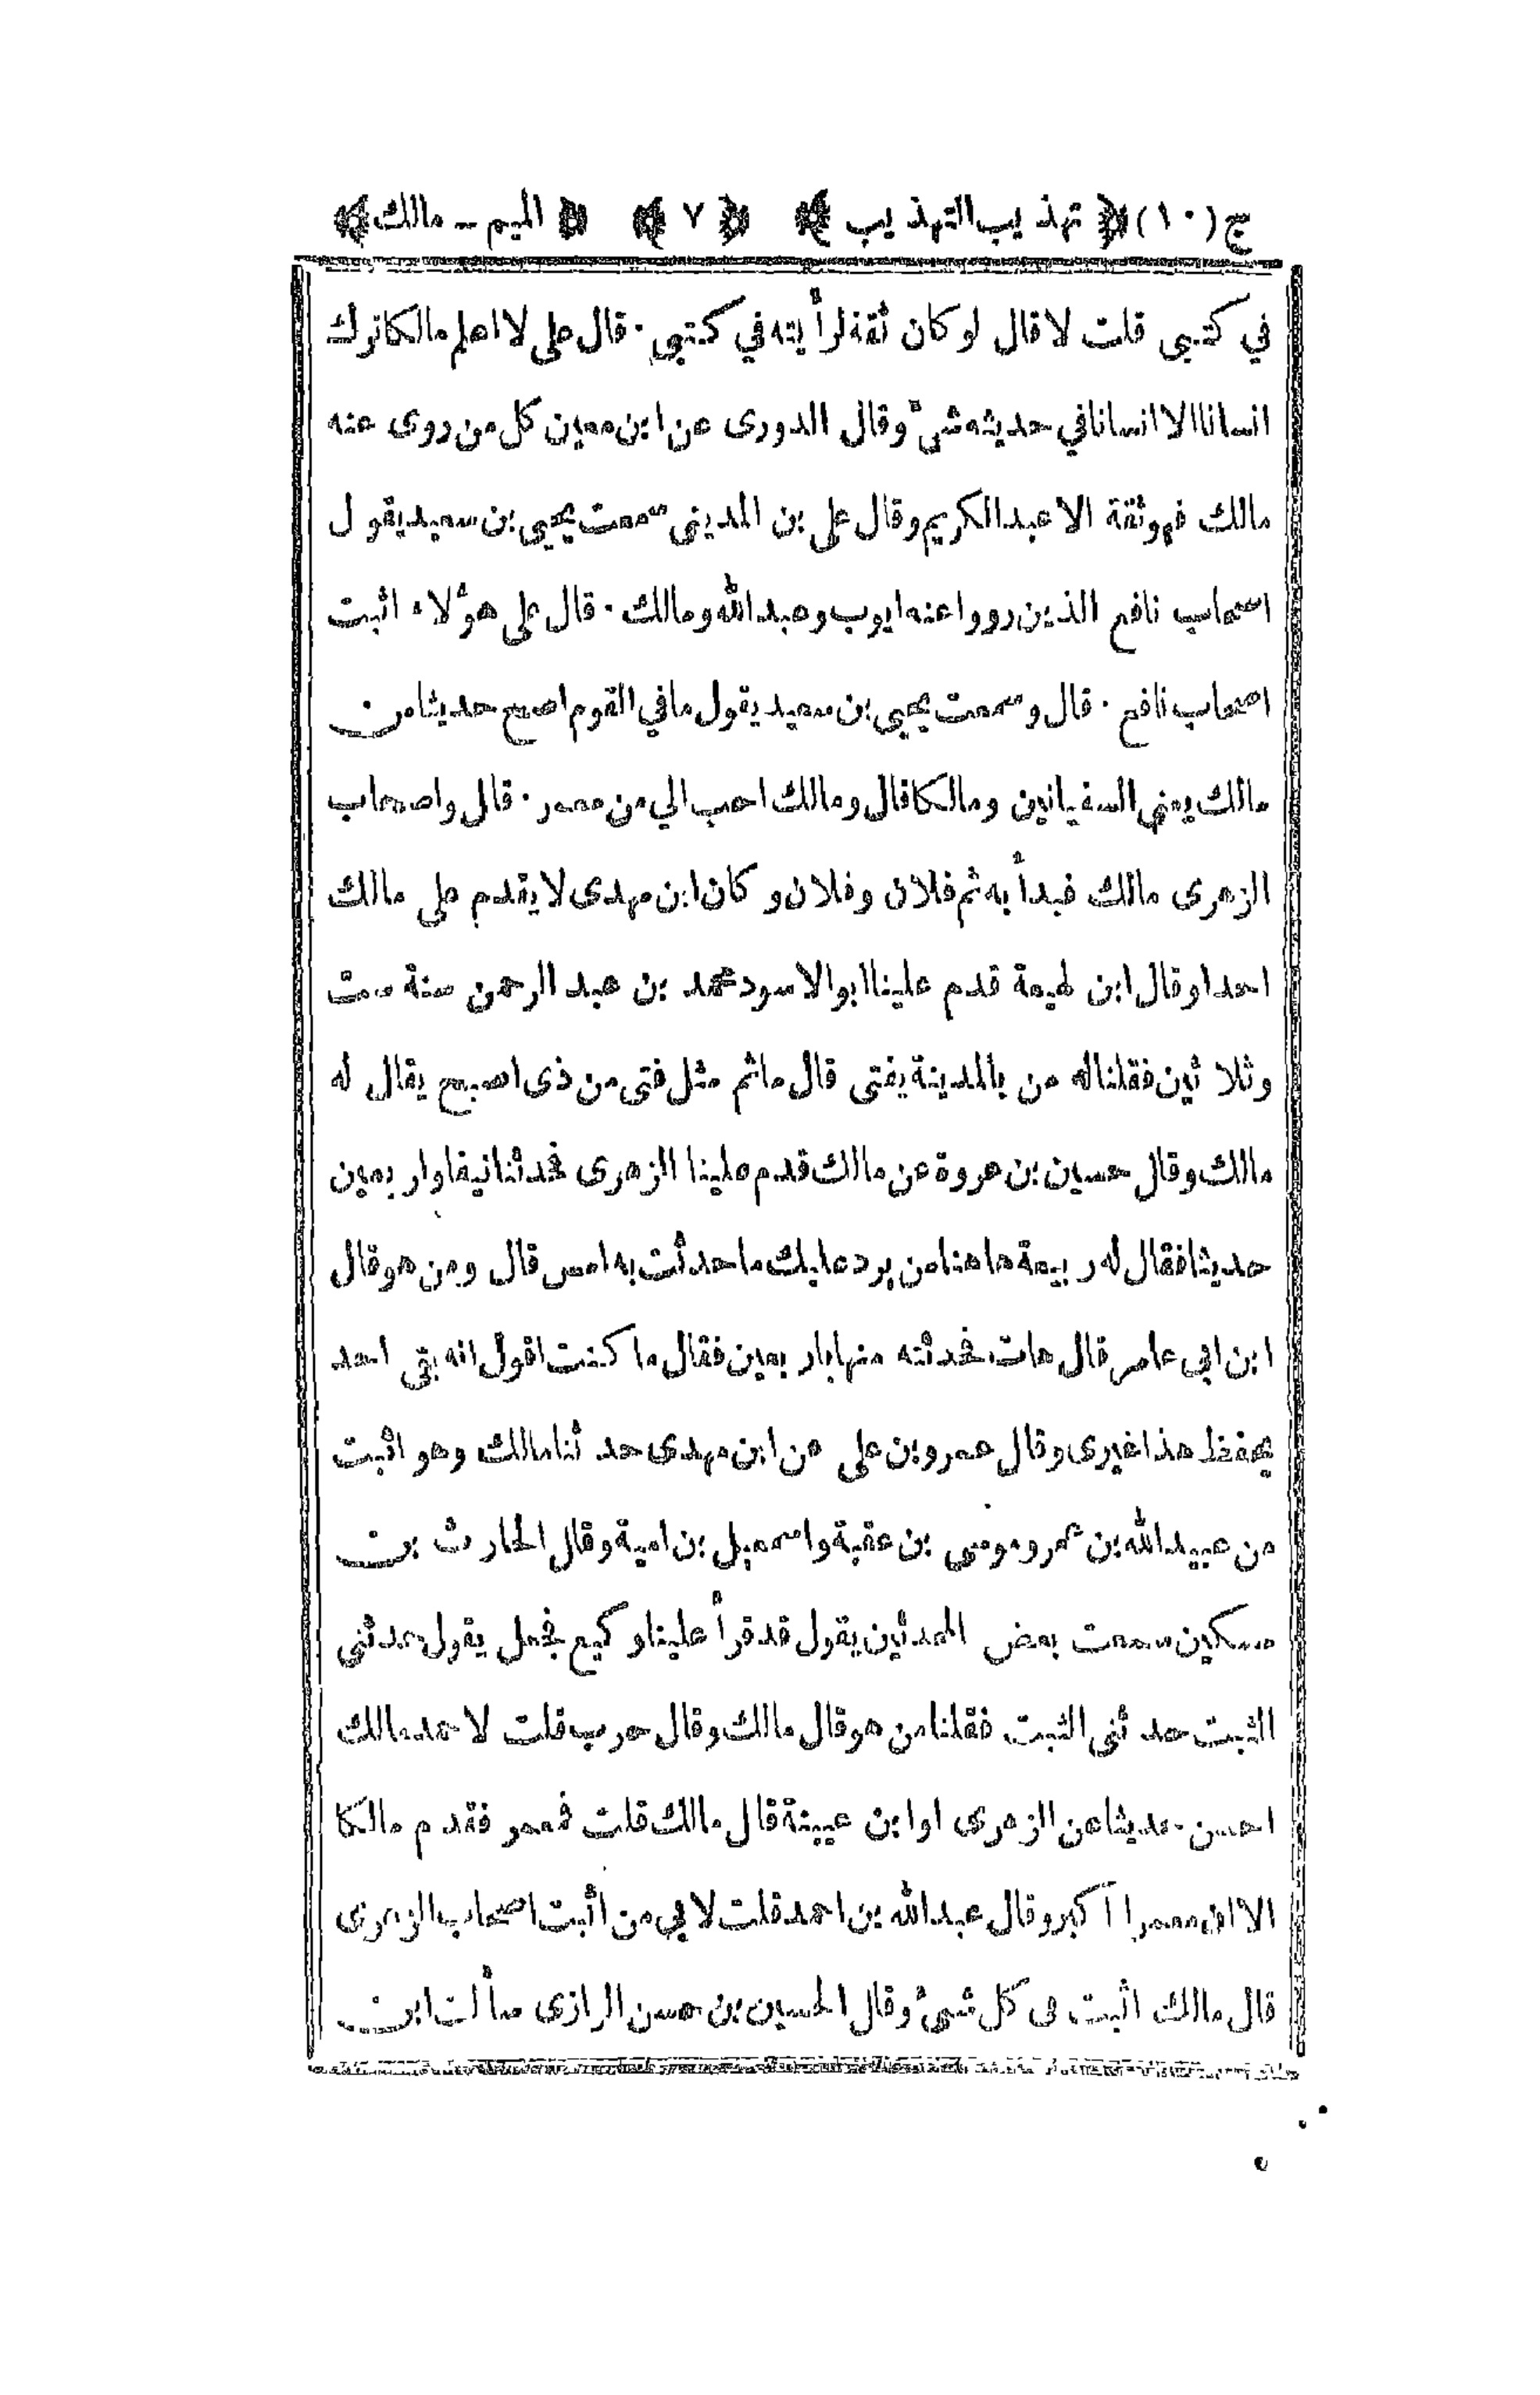 ج (١٠) ﴿ تهذيب التهذيب ﴾ ﴿ ٧ ﴾ ﴿ الميم ـ مالك ﴾
في كتبى قلت لا قال لو كان ثقة لرأيته في كتبي . قال على لا اعلم مالكا ترك
انسانا الا انسانا في حديثه شئ وقال الدورى عن ابن معين كل من روى عنه
مالك فهو ثقة الا عبد الكريم وقال على بن المدينى سمعت يحيى بن سعيد يقول
اصحاب نافع الذين رووا عنه ايوب وعبد الله ومالك . قال على هؤلاء اثبت
اصحاب نافع . قال وسمعت يحيى بن سعيد يقول ما في القوم اصح حديثا من
مالك يعنى السفيانين ومالكا قال ومالك احب الي من معمر . قال واصحاب
الزهرى مالك فبدأ به ثم فلان وفلان وكان ابن مهدى لا يقدم على مالك
احدا وقال ابن لهيعة قدم علينا ابو الاسود محمد بن عبد الرحمن سنة ست
وثلاثين فقلنا له من بالمدينة يفتى قال ما ثم مثل فتى من ذى اصبح يقال له
مالك وقال حسين بن عروة عن مالك قدم علينا الزهرى فحدثنا نيفا واربعين
حديثا فقال له ربيعة هاهنا من يرد عليك ما حدثت به امس قال ومن هو قال
ابن ابى عامر قال هات فحدثته منها باربعين فقال ما كنت اقول انه بقي احد
يحفظ هذا غيرى وقال عمرو بن على عن ابن مهدى حدثنا مالك وهو اثبت
من عبيد الله بن عمر وموسى بن عقبة واسمعيل بن امية وقال الحارث بن
مسكين سمعت بعض المحدثين يقول قد قرأ علينا وكيع فجعل يقول حدثنى
الثبت حدثنى الثبت فقلنا من هو قال مالك وقال حرب قلت لاحمد مالك
احسن حديثا عن الزهرى او ابن عيينة قال مالك قلت فمعمر فقدم مالكا
الا ان معمرا اكبر وقال عبد الله بن احمد قلت لابي من اثبت اصحاب الزهرى
قال مالك اثبت فى كل شئ وقال الحسين بن حسن الرازى سألت ابن